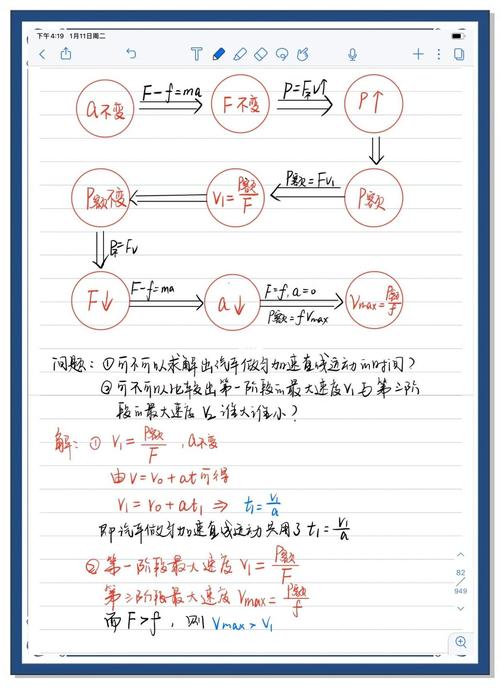 下午4:19 1月11日周二
a不变 F-f=ma F不变 P=Fv↑ P↑
P额不变 V₁=P额/F P额=FV₁ P额
P=Fv
F↓ F-f=ma a↓ F=f, a=0 P额=fVmax Vmax=P额/f
问题:①可不可以求解出汽车做匀加速直线运动的时间?
②可不可以比较出第一阶段的最大速度V₁与第三阶
段的最大速度V₂谁大谁小?
解:① V₁=P额/F ,a不变
由V=V₀+at可得
V₁=V₀+at₁ ⇒ t₁=V₁/a
即汽车做匀加速直线运动共用了t₁=V₁/a
②第一阶段最大速度V₁=P额/F
第三阶段最大速度Vmax=P额/f
而F>f,则Vmax>V₁
82
949